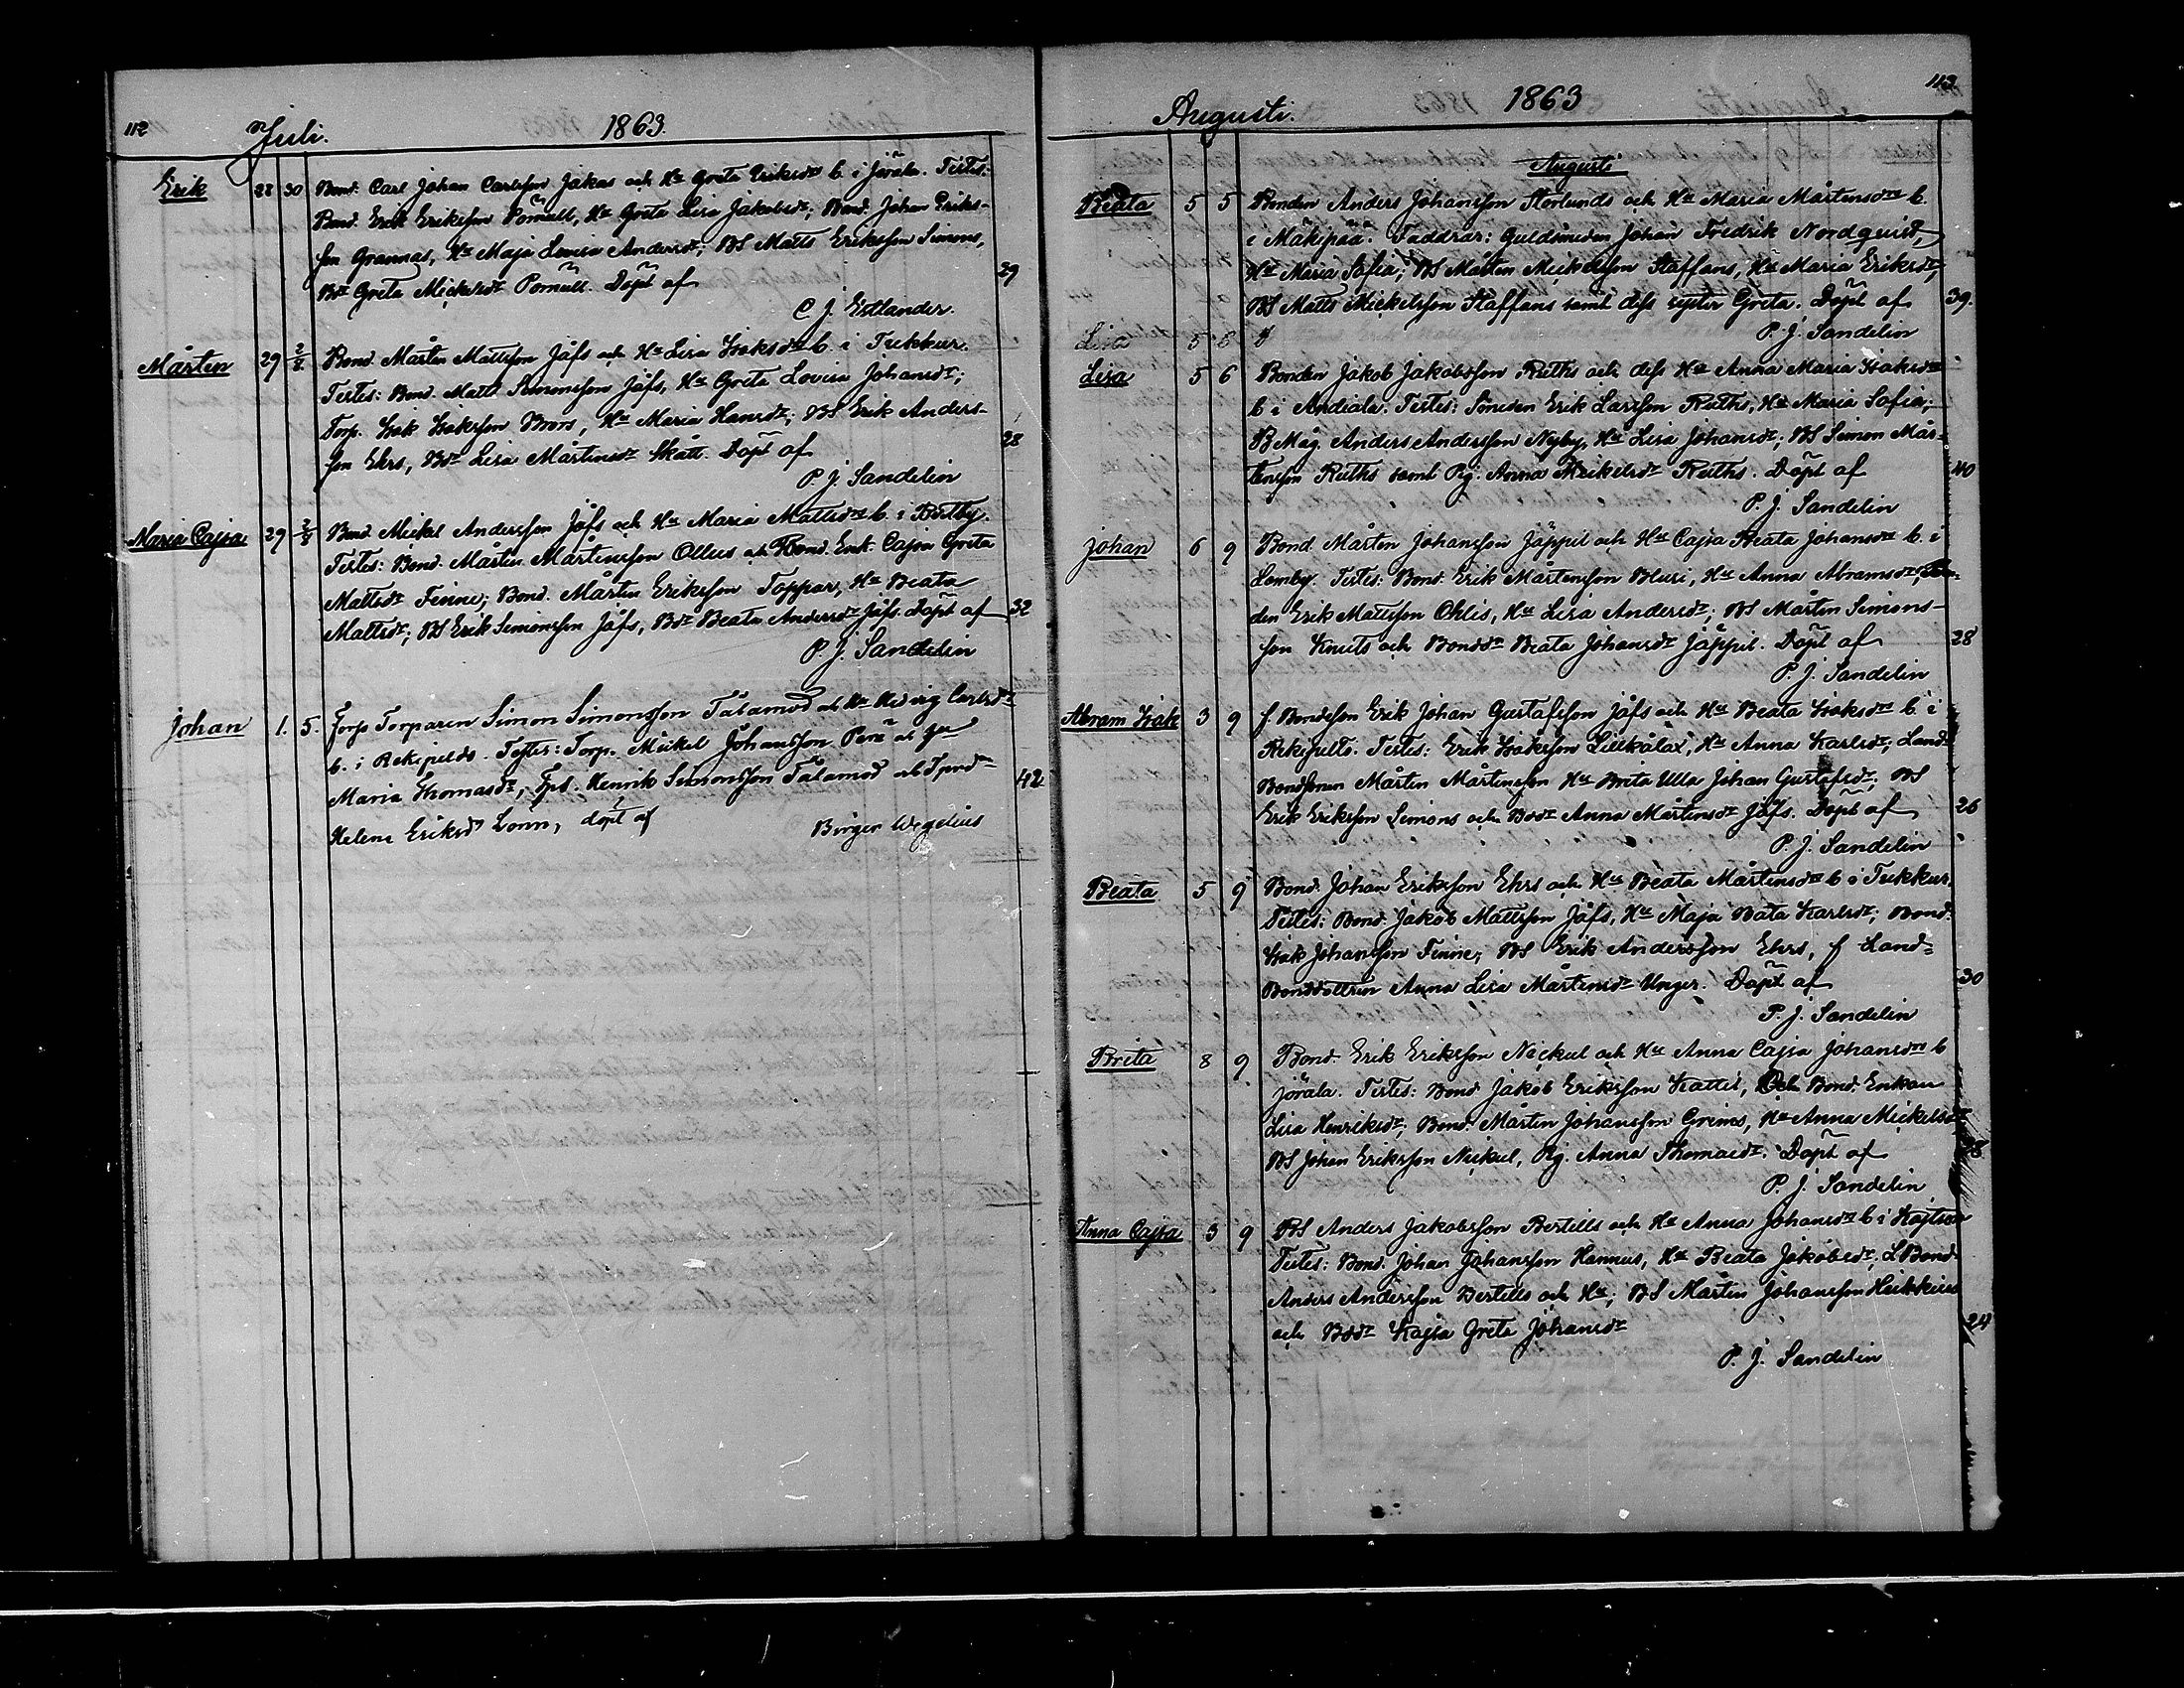 112 Juli. 1863.
Erik 28 30 Bond. Carl Johan Carlsson Jakas och Hu Greta Eriksdr b. i Jöråla. Testes:
Bond. Erik Eriksson Pörnull, Hu Greta Lisa Jakobsdr; Bond. Johan Eriks-
son Grannas, Hu Maja Lovisa Andersdr; BS Matts Eriksson Simons,
Bdr Greta Mickelsdr Pörnull. Döpt af 29
C. J. Estlander.
Mårten 29 2/8 Bond. Mårten Mattsson Jåfs och Hu Lisa Isaksdr b. i Tukkur.
Testes: Bond. Matts Simonsson Jåfs, Hu Greta Lovisa Johansdr;
Torp. Isak Isaksson Brors, Hu Maria Hansdr; BS Erik Anders-
son Ehrs, Bdr Lisa Mårtensdr Skått. Döpt af 28
P. J. Sandelin
Maria Cajsa 29 2/8 Bond. Mickel Andersson Jåfs och Hu Maria Mattsdr b. i Bertby.
Testes: Bond. Mårten Mårtensson Ollus och Bond. Enk. Cajsa Greta
Mattsdr Finne; Bond. Mårten Eriksson Toppar, Hu Beata
Mattsdr; BS Erik Simonsson Jåfs, Bdr Beata Andersdr Jåfs. Döpt af 32
P. J. Sandelin
Johan 1. 5. Torparen Simon Simonsson Tålamod och Hu Hedvig Carlsdr
b. i Rekipeldo. Testes: Torp. Mickel Johansson Perä och Hu
Maria Thomasdr, Tps. Henrik Simonsson Tålamod och
Helena Eriksdr Lonn, döpt af 42
Birger Wegelius
Augusti. 1863 113
Augusti
Beata 5 5 Bonden Anders Johansson Storlunds och Hu Maria Mårtensdr b.
i Mäkipää. Faddrar: Guldsmeden Johan Fredrik Nordquist,
Hu Maria Sofia; BS Mårten Mickelsson Staffans, Hu Maria Eriksdr;
BS Matts Mickelsson Staffans samt dess syster Greta. Döpt af 39.
P. J. Sandelin
Lisa 5 6
Lisa 5 6 Bonden Jakob Jakobsson Ruths och dess Hu Anna Maria Isaksdr
b i Andiala. Testes: Smeden Erik Larsson Ruths, Hu Maria Sofia;
B Måg. Anders Andersson Nyby, Hu Lisa Johansdr; BS Simon Mår-
tensson Ruths samt Pig. Anna Mickelsdr Ruths. Döpt af 40
P. J. Sandelin
Johan 6 9 Bond. Mårten Johansson Jäppil och Hu Cajsa Beata Johansdr b. i
Lomby. Testes: Bond. Erik Mårtensson Bluri, Hu Anna Abramsdr; Bon-
den Erik Mattsson Ohlis, Hu Lisa Andersdr; BS Mårten Simons-
son Knuts och Bondd Beata Johansdr Jäppil. Döpt af 28
P. J. Sandelin
Abram Isak 3 9 f. Bondeson Erik Johan Gustafsson Jåfs och Hu Beata Isaksdr b. i
Rekipeldo. Testes: Erik Isaksson Lillkålax, Hu Anna Karlsdr; Land-
Bondsonen Mårten Mårtensson Hu Brita Ulla Johan Gustafsdr; BS
Erik Eriksson Simons och Bdr Anna Mårtensdr Jåfs. Döpt af 26
P. J. Sandelin
Beata 5 9 Bond. Johan Eriksson Ehrs och Hu Beata Mårtensdr b i Tukkur.
Testes: Bond. Jakob Mattsson Jåfs, Hu Maja Bata Karlsdr; Bond.
Isak Johansson Finne; BS Erik Andersson Ehrs, f Land-
Bonddottren Anna Lisa Mårtensdr Unger. Döpt af 30
P. J. Sandelin
Brita 8 9 Bond. Erik Eriksson Nickul och Hu Anna Cajsa Johansdr b
Jöråla. Testes: Bond Jakob Eriksson Kattil, och Bond. Enkan
Lisa Henriksdr; Bond. Mårten Johansson Grims, Hu Anna Mickelsdr
BS Johan Eriksson Nickul, Pig. Anna Thomasdr. Döpt af
P. J. Sandelin
Anna Cajsa 3 9 BS Anders Jakobsson Bertills och Hu Anna Johansdr b i Kajtson
Testes: Bond. Johan Johansson Hannus, Hu Beata Jakobsdr; L Bond.
Anders Andersson Bertills och Hu; BS Mårten Johansson Heikkus
och Bdr Kajsa Greta Johansdr 24
P. J. Sandelin